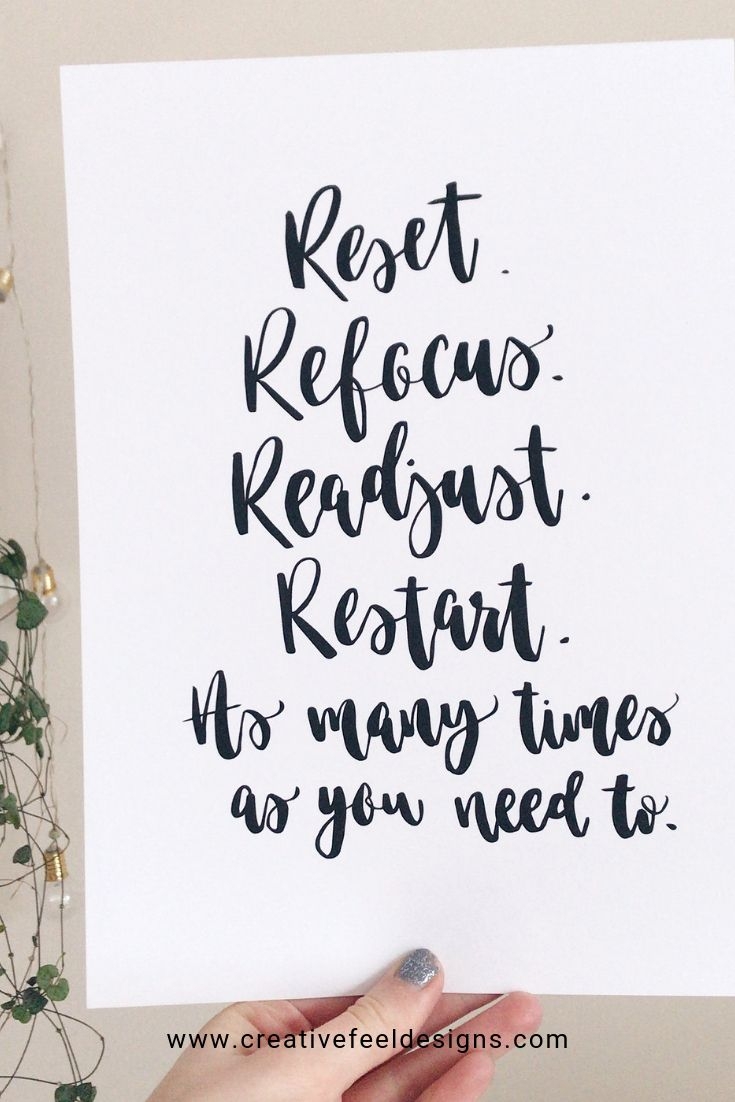 Reset.
Refocus.
Readjust.
Restart.
As many times
as you need to.
www.creativefeeldesigns.com